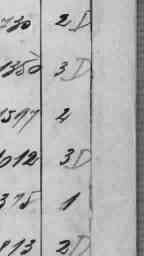 730 2 D
1350 3 D
1517 2
1012 3 D
375 1
913 2 D